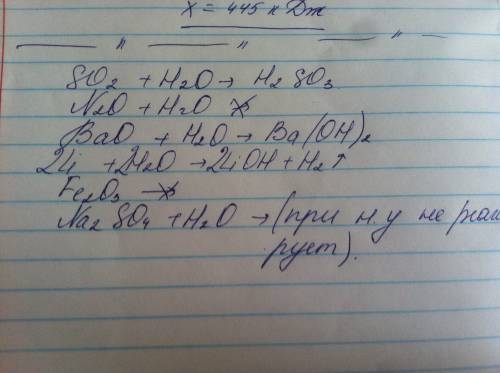 X = 445 кДж
— " — " — " —
SO₂ + H₂O → H₂SO₃
N₂O + H₂O ↛
BaO + H₂O → Ba(OH)₂
2Li + 2H₂O → 2LiOH + H₂↑
Fe₂O₃ ↛
Na₂SO₄ + H₂O → (при н.у не реаги
рует).